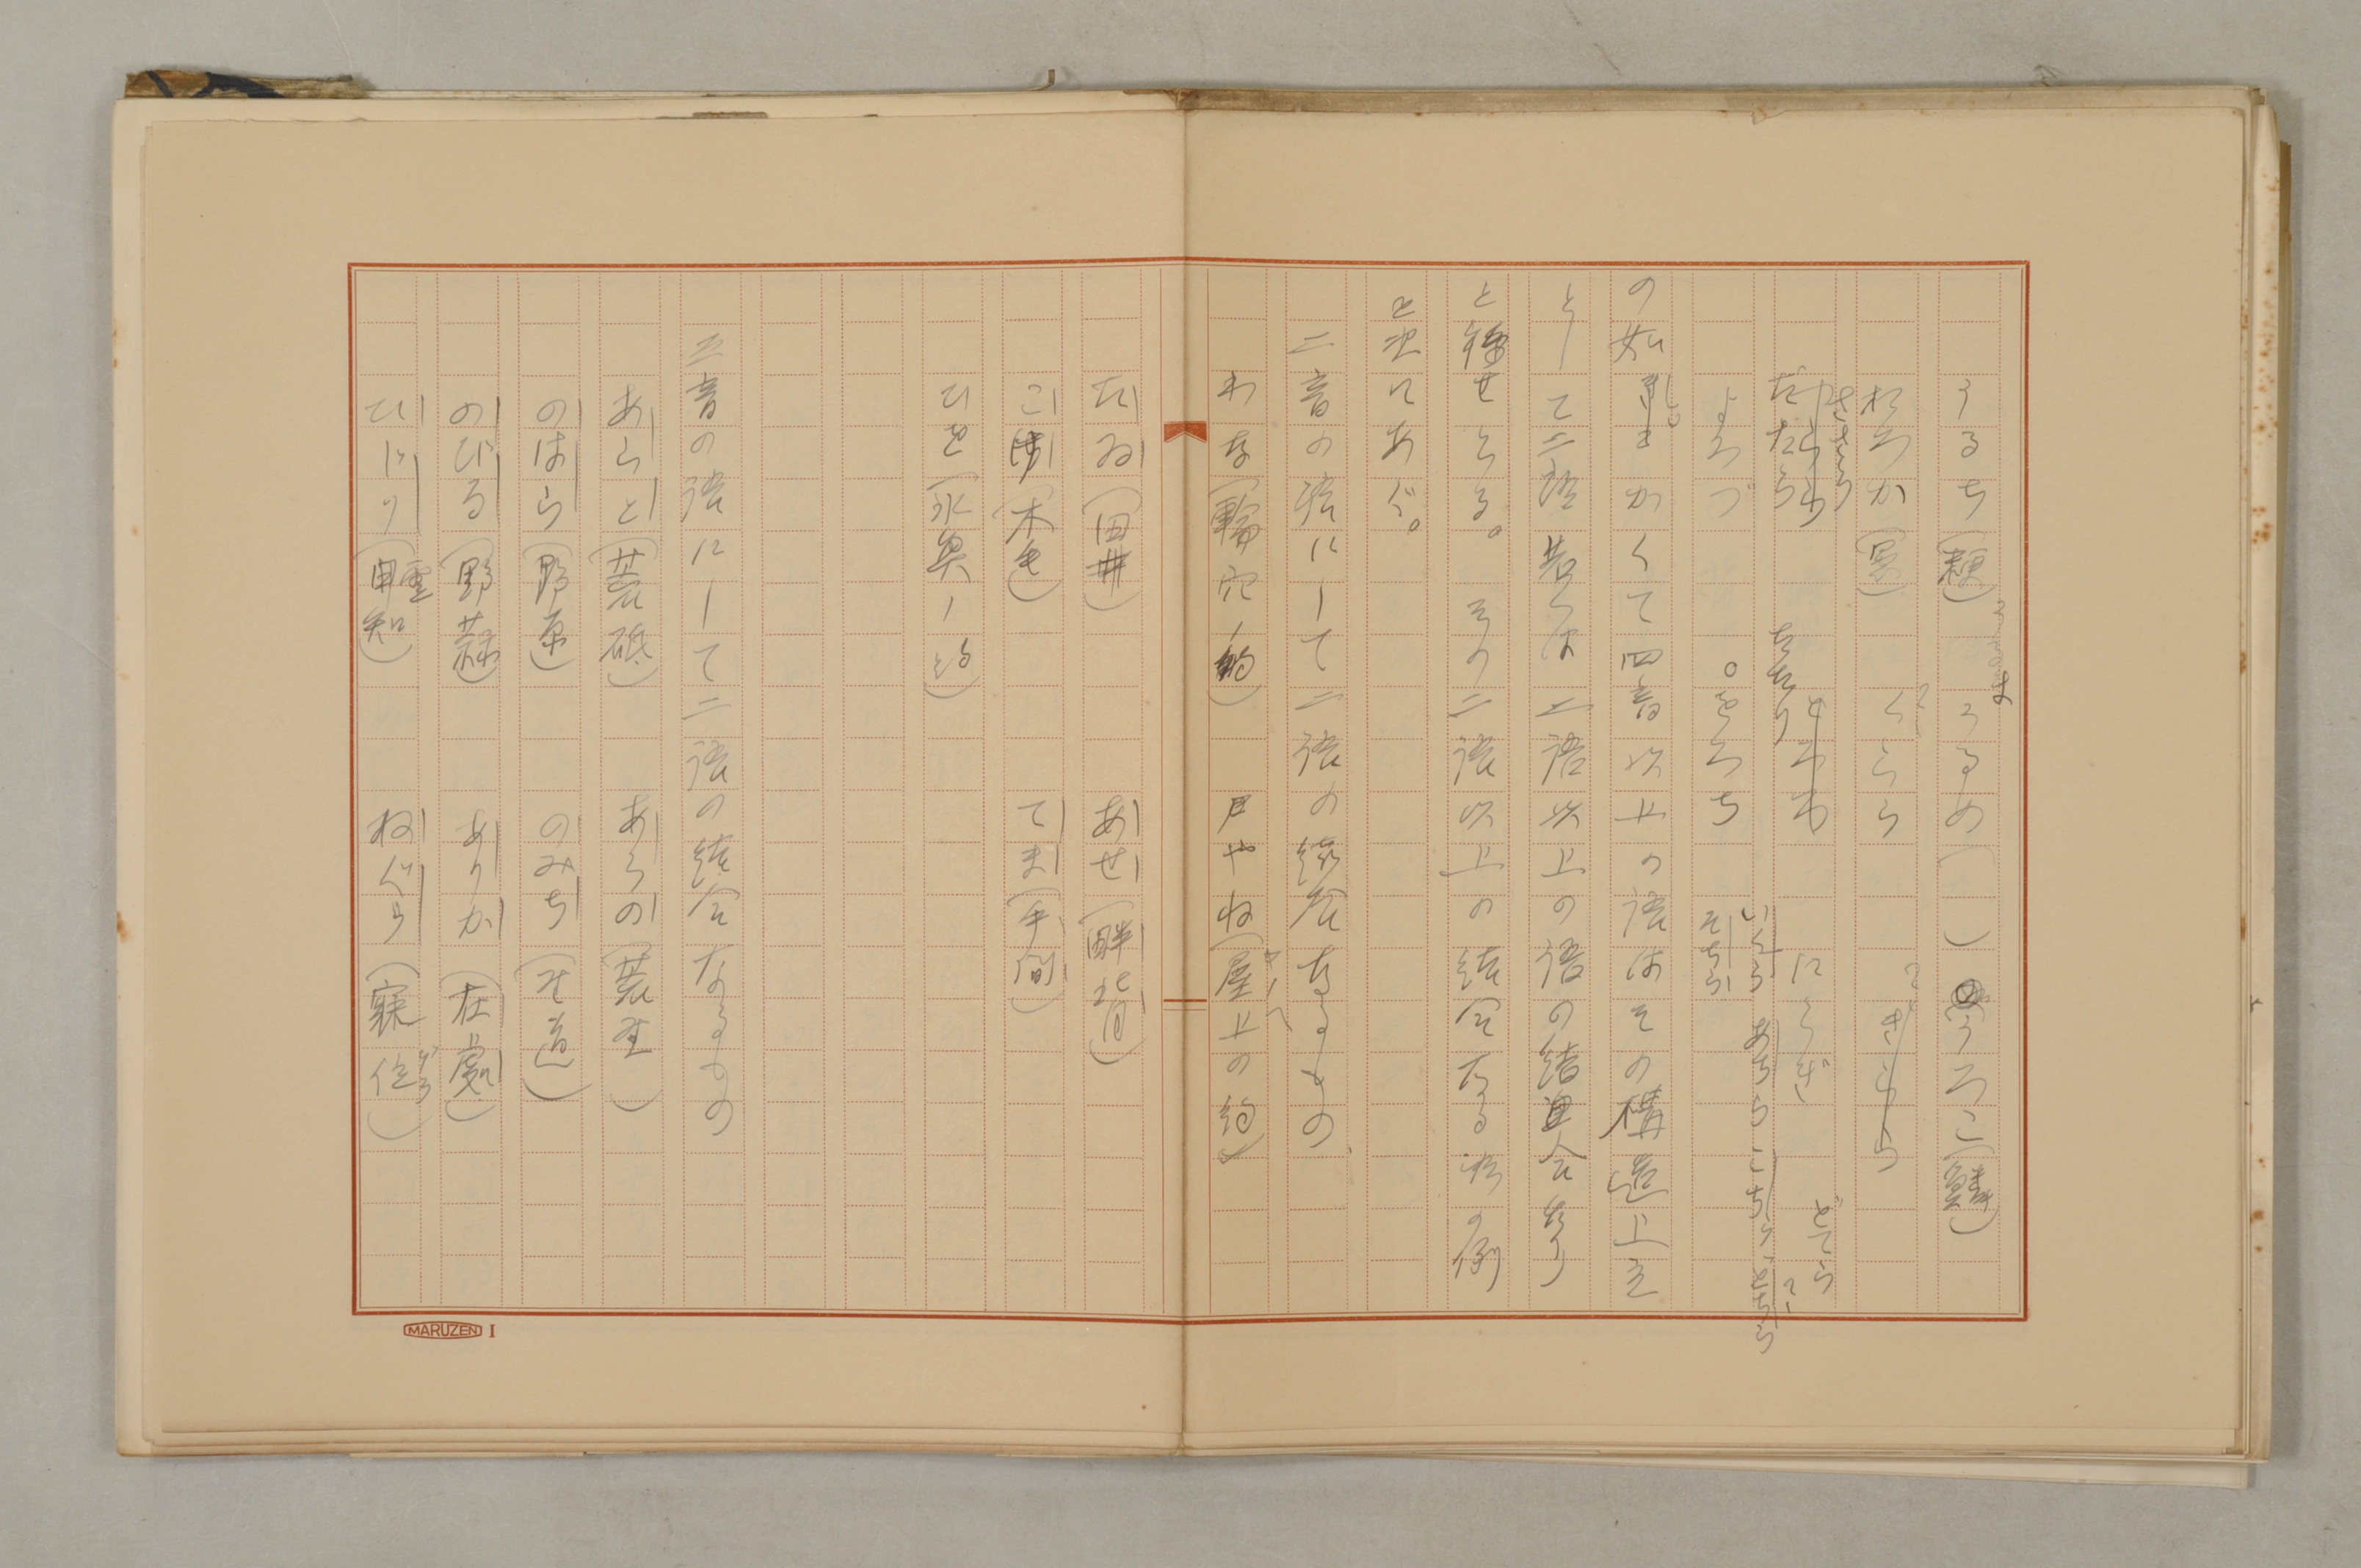 うるち(粳) うるめ( ) うろこ(鱗)
おろか(愚) くらら
ささら
たたら たたり にらぎ どてら
いくら あちら こちら どちら
よろづ をろち そちら
の如し かくて四音以上の語はその構造上主
として二語若くは二語以上の語の結合なり
と稱せらる。 その二語以上の結合なるものの例
を次にあぐ。
二音の語にして二語の結合なるもの
わな(輪穴ノ約) やね(屋上の約)
たゐ(田井) あせ(畔背)
こけ(木毛) てま(手間)
ひを(氷魚ノ約)
三音の語にして二語の結合なるもの
あらと(荒砥) あらの(荒野)
のはら(野原) のみち(野道)
のびる(野蒜) ありか(在處)
ひじり(日知) ねぐら(寐位)
MARUZEN I